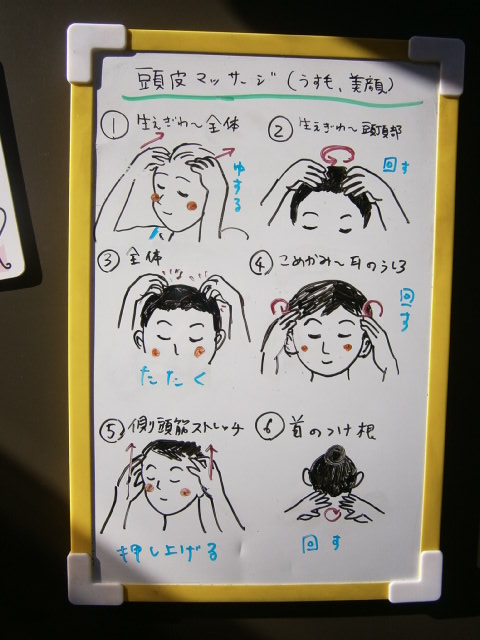 頭皮マッサージ(うすも、美顔)
① 生えぎわ〜全体
ゆする
② 生えぎわ〜頭頂部
回す
③ 全体
たたく
④ こめかみ〜耳のうしろ
回す
⑤ 側頭筋ストレッチ
押し上げる
⑥ 首のつけ根
回す